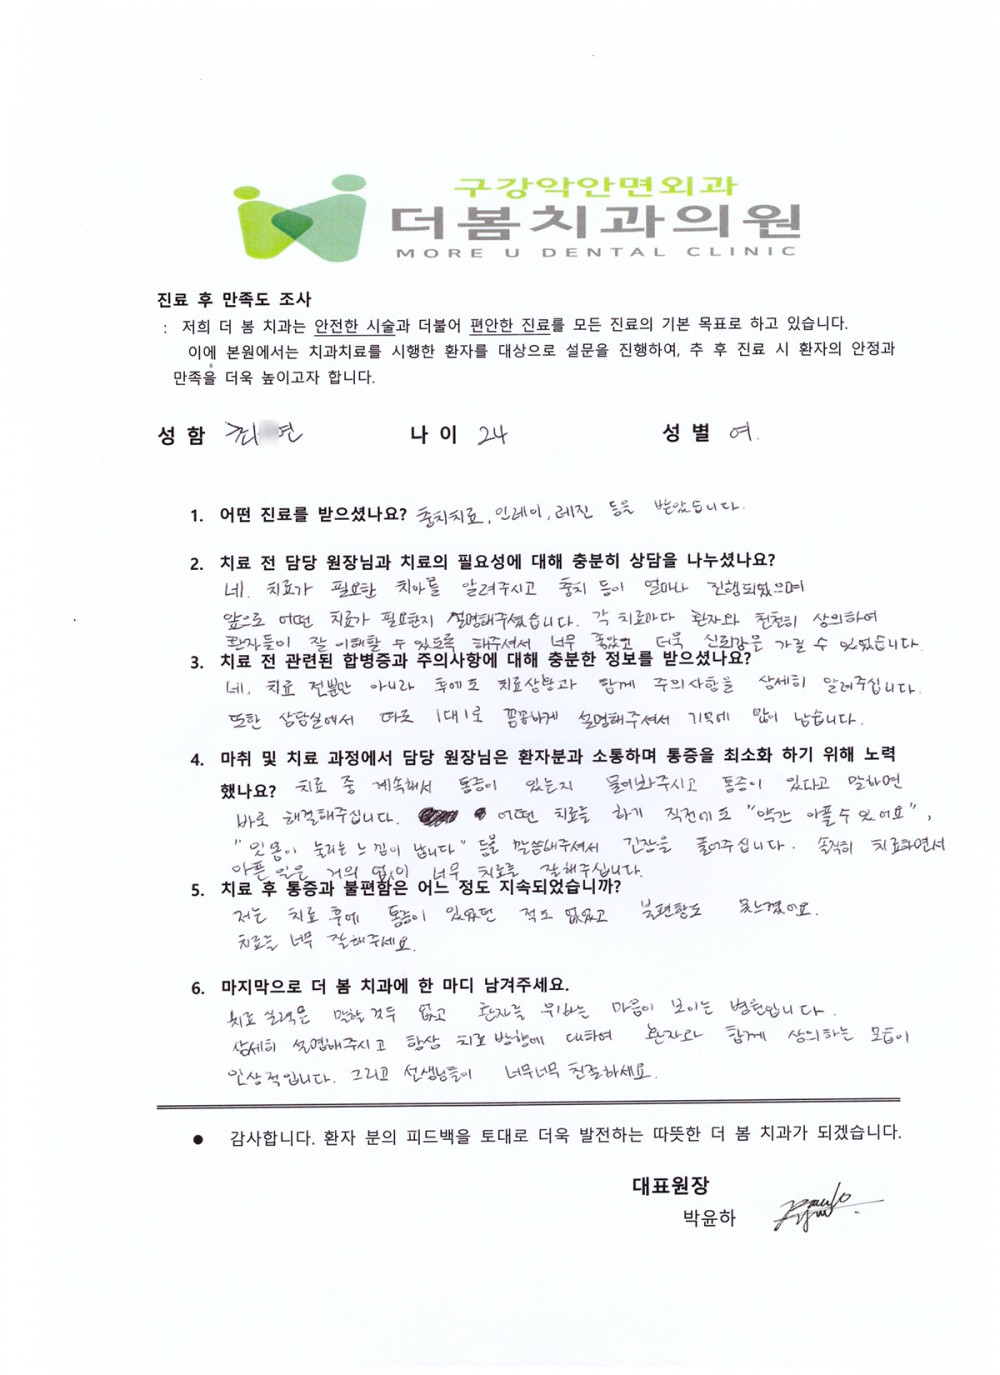 구강악안면외과
더봄치과의원
MORE U DENTAL CLINIC
진료 후 만족도 조사
: 저희 더 봄 치과는 안전한 시술과 더불어 편안한 진료를 모든 진료의 기본 목표로 하고 있습니다.
이에 본원에서는 치과치료를 시행한 환자를 대상으로 설문을 진행하여, 추 후 진료 시 환자의 안정과
만족을 더욱 높이고자 합니다.
성 함 최 연 나 이 24 성 별 여.
1. 어떤 진료를 받으셨나요? 충치치료, 인레이, 레진 등을 받았습니다.
2. 치료 전 담당 원장님과 치료의 필요성에 대해 충분히 상담을 나누셨나요?
네. 치료가 필요한 치아를 알려주시고 충치 등이 얼마나 진행되었으며
앞으로 어떤 치료가 필요한지 설명해주셨습니다. 각 치료마다 환자와 천천히 상의하여
환자들이 잘 이해할 수 있도록 해주셔서 너무 좋았고 더욱 신뢰감을 가질 수 있었습니다.
3. 치료 전 관련된 합병증과 주의사항에 대해 충분한 정보를 받으셨나요?
네, 치료 전뿐만 아니라 후에도 치료상황과 함께 주의사항을 상세히 알려주십니다.
또한 상담실에서 따로 1대1로 꼼꼼하게 설명해주셔서 기억에 많이 남습니다.
4. 마취 및 치료 과정에서 담당 원장님은 환자분과 소통하며 통증을 최소화 하기 위해 노력
했나요? 치료 중 계속해서 통증이 있는지 물어봐주시고 통증이 있다고 말하면
바로 해결해주십니다. 어떤 치료를 하기 직전에도 "약간 아플 수 있어요",
"잇몸이 눌리는 느낌이 납니다" 등을 말씀해주셔서 긴장을 풀어주십니다. 솔직히 치료하면서
아픈 일은 거의 없이 너무 치료를 잘해주십니다.
5. 치료 후 통증과 불편함은 어느 정도 지속되었습니까?
저는 치료 후에 통증이 있었던 적도 없었고 불편함도 못느꼈어요.
치료를 너무 잘해주세요.
6. 마지막으로 더 봄 치과에 한 마디 남겨주세요.
치료 실력은 말할 것두 없고 환자를 위하는 마음이 보이는 병원입니다.
상세히 설명해주시고 항상 치료 방향에 대하여 환자와 함께 상의하는 모습이
인상적입니다. 그리고 선생님들이 너무너무 친절하세요.
● 감사합니다. 환자 분의 피드백을 토대로 더욱 발전하는 따뜻한 더 봄 치과가 되겠습니다.
대표원장
박윤하